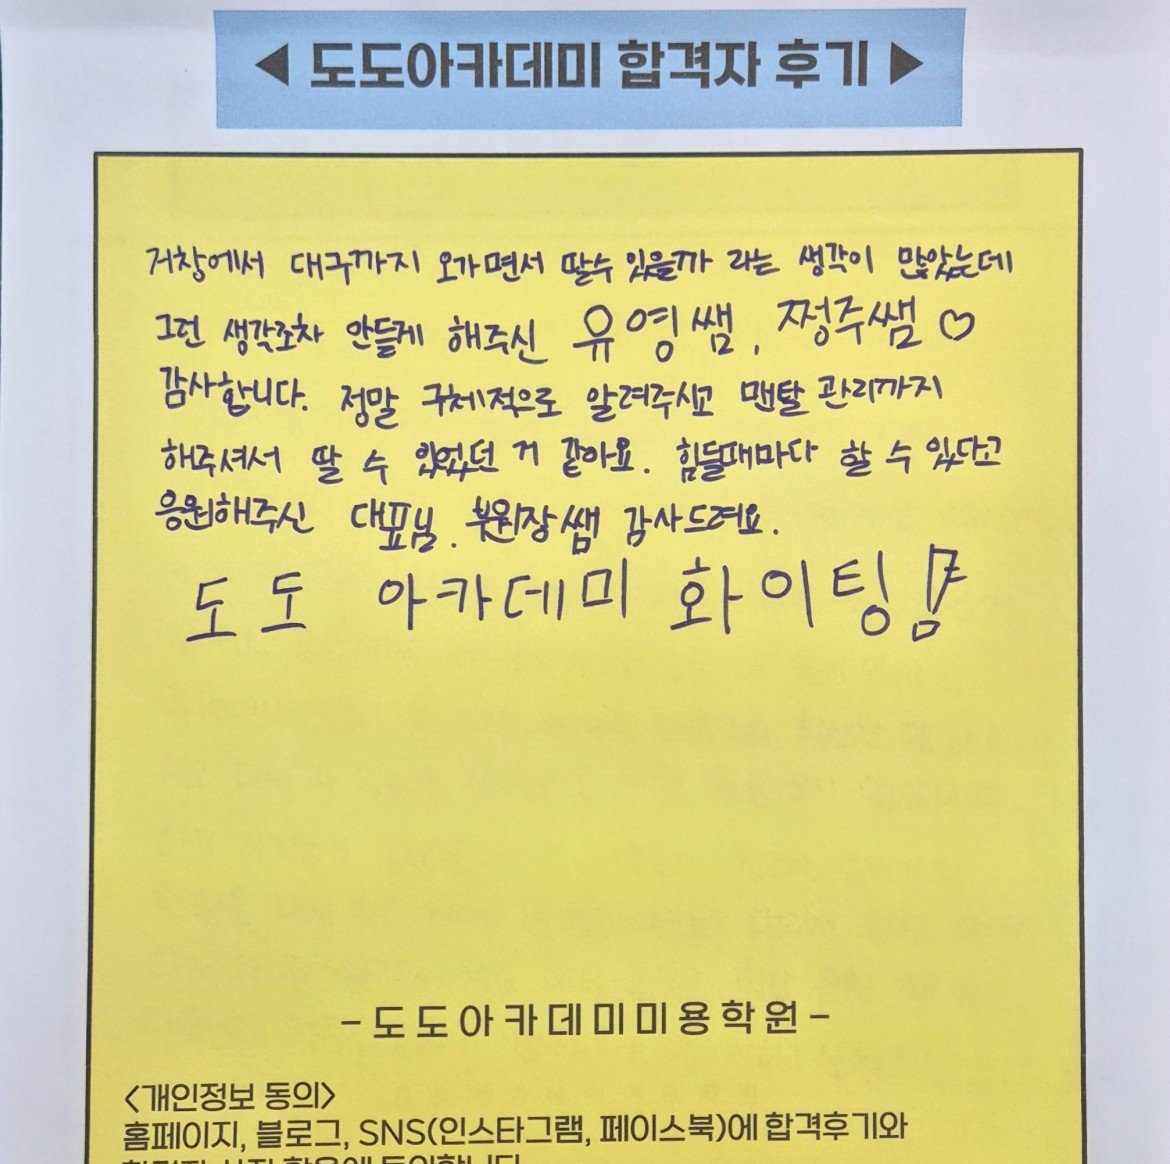 ◀ 도도아카데미 합격자 후기 ▶
거창에서 대구까지 오가면서 딸수 있을까 라는 생각이 많았는데
그런 생각조차 안들게 해주신 유영쌤, 쩡주쌤 ♡
감사합니다. 정말 구체적으로 알려주시고 맨탈 관리까지
해주셔서 딸 수 있었던 거 같아요. 힘들때마다 할 수 있다고
응원해주신 대표님. 부원장쌤 감사드려요.
도도 아카데미 화이팅!
-도도아카데미미용학원-
<개인정보 동의>
홈페이지, 블로그, SNS(인스타그램, 페이스북)에 합격후기와